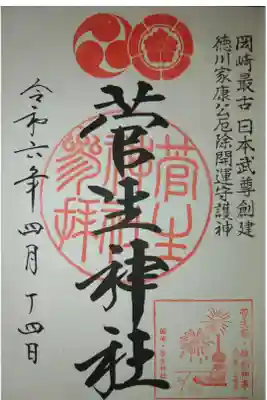 岡崎最古 日本武尊創建
徳川家康公厄除開運守護神
菅生神社
参拝
菅生神社
令和六年 四月 十四日